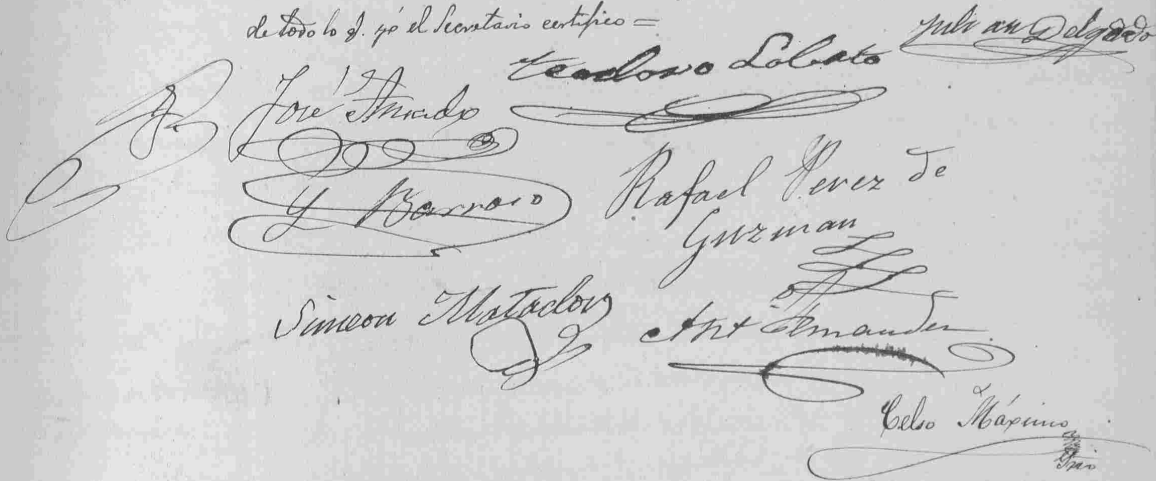 de todo lo q. yó el Secretario certifico =
Julian Delgado
Teodoro Lobato
José Amado
y Barroso
Rafael Perez de
Guzman
Simeon Matador
Ant Hernandez
Celso Máximo
Srio